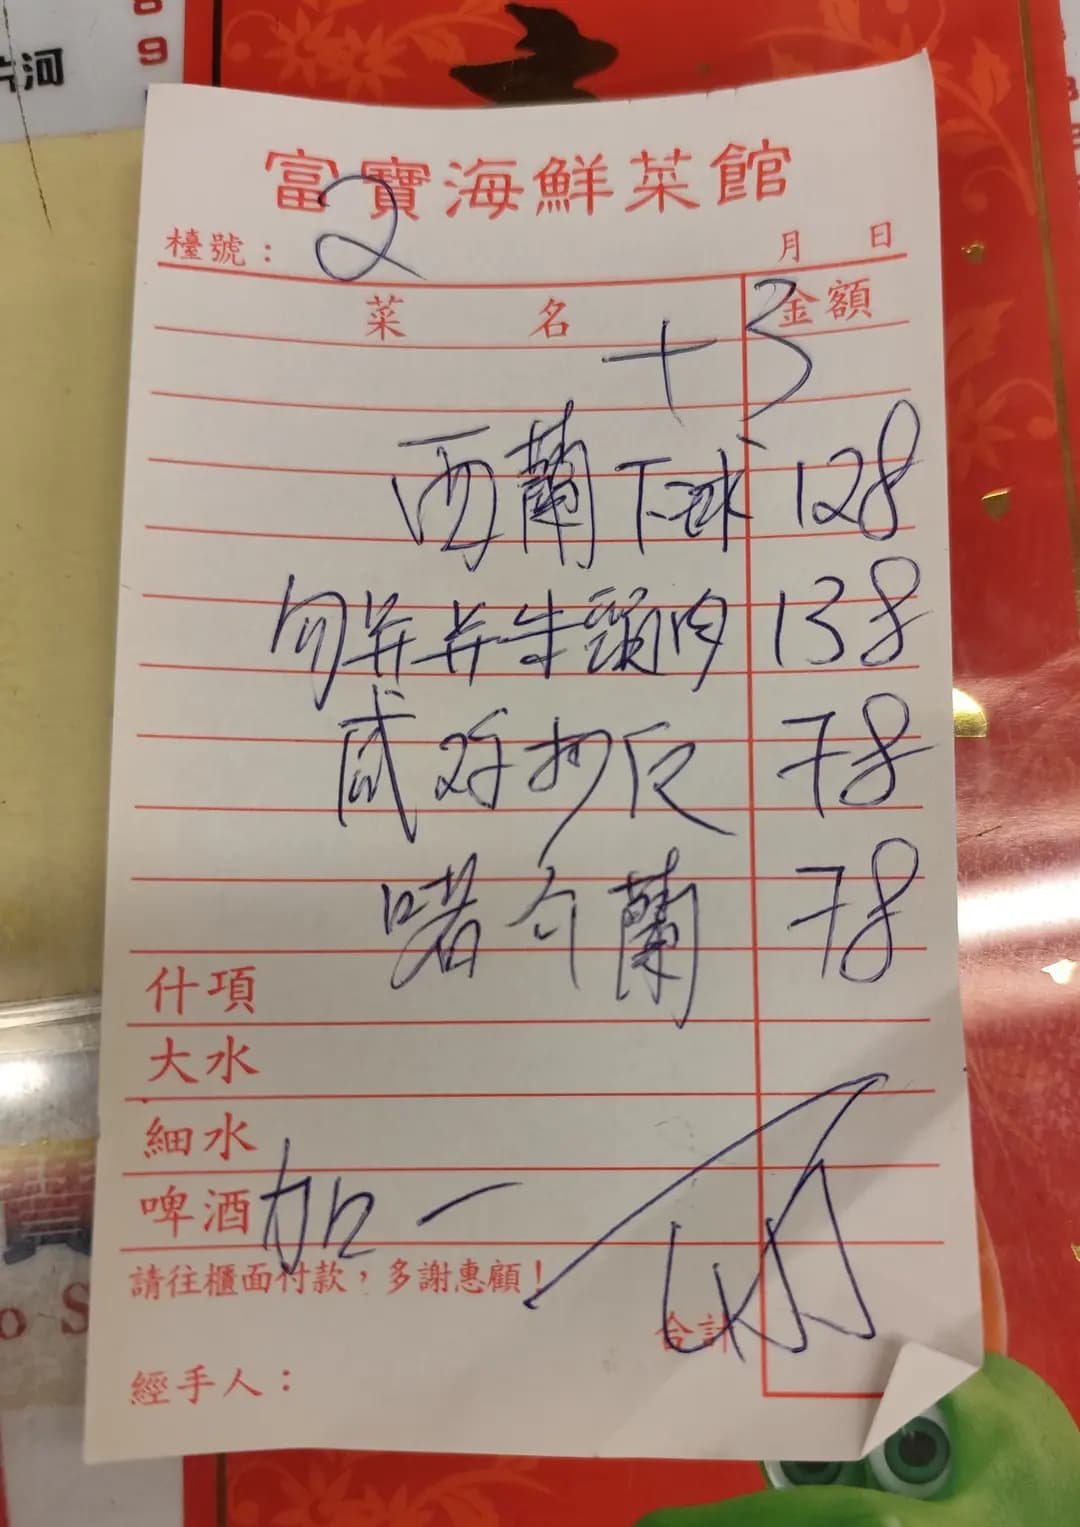 片河
8
9
富寶海鮮菜館
檯號： 2 月 日
菜名 金額
十3
西蘭下球 128
勿并并牛頭肉 138
咸 抄反 78
啫介蘭 78
什項
大水
細水
啤酒 加一
請往櫃面付款，多謝惠顧！
合計
經手人：
o S